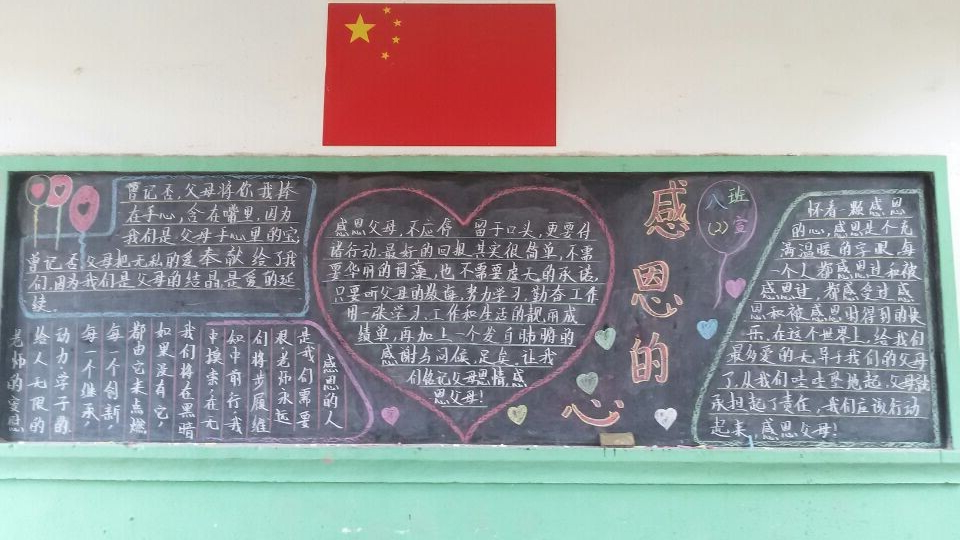 曾记否,父母将你我捧
在手心,含在嘴里,因为
我们是父母手心里的宝;
曾记否父母把无私的爱奉献给了我
们,因为我们是父母的结晶是爱的延
续.
感恩的人
是我们需要
很老师永远
们将步履维
知中前行我
中摸索,在无
我们将在黑暗
如果没有它,
都由它来点燃
每一个创新,
每一个继承,
动力,学子的
给人无限的
老师的
感恩父母,不应停 留于口头,更要付
诸行动.最好的回报其实很简单,不需
要华丽的词藻,也不需要虚大的承诺,
只要听父母的教诲,努力学习,勤奋工作
用一张学习、工作和生活的靓丽成
绩单,再加上一个发自肺腑的
感谢与问候,足矣.让我
们铭记父母恩情,感
恩父母!
感
恩
的
心
八班
(2)宣
怀着一颗感恩
的心,感恩是个充
满温暖的字眼,每
一个人都感恩过和被
感恩过,都感受过感
恩和被感恩时得到的快
乐,在这个世界上,给我们
最多爱的无异于我们的父母
了.从我们呱呱坠地起,父母就
承担起了责任,我们应该行动
起来,感恩父母!